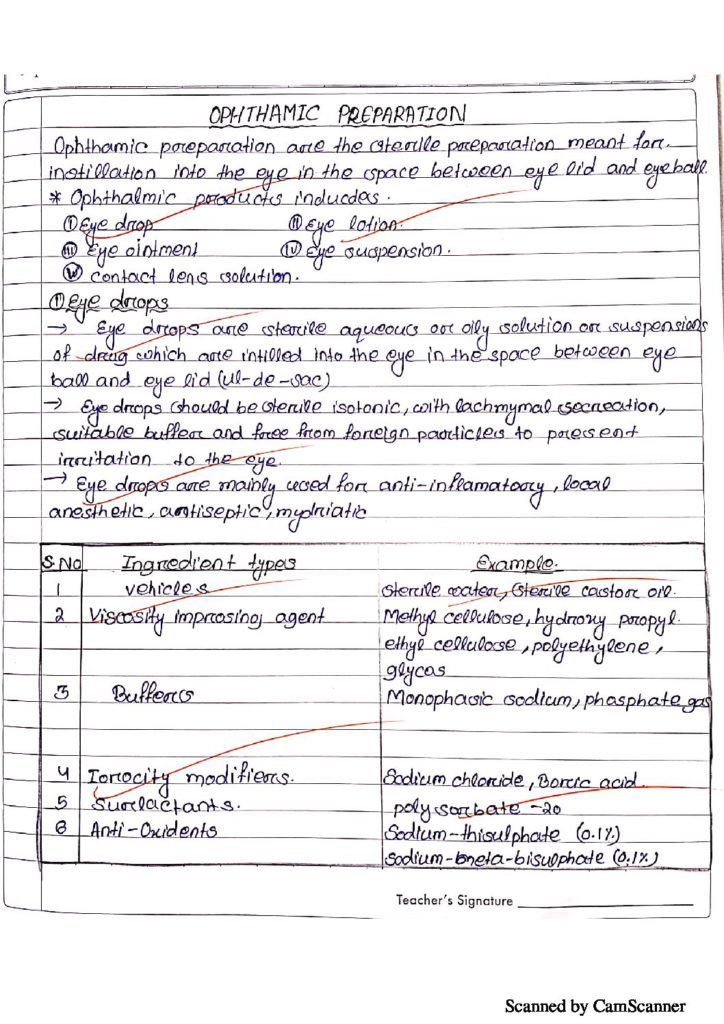 OPHTHAMIC PREPARATION
Ophthamic preparation are the sterile preparation meant for
instillation into the eye in the space between eye lid and eyeball.
* Ophthalmic products inducdes.
(I) Eye drop (II) Eye lotion.
(III) Eye ointment (IV) Eye suspension.
(V) contact lens solution.
(I) Eye drops
→ Eye drops are sterile aqueous or oily solution or suspensions
of drug which are intilled into the eye in the space between eye
ball and eye lid (ul-de-sac)
→ Eye drops should be sterile isotonic, with lachmymal secreation,
suitable buffer and free from foreign particles to present
irritation to the eye.
→ Eye drops are mainly used for anti-inflamatory, local
anesthetic, antiseptic, mydriatic
S.No Ingredient types Example.
1 vehicles sterile water, sterile castor oil.
2 Viscosity improsing agent Methyl cellulose, hydroxy propyl.
ethyl cellulose, polyethylene,
glycas
3 Buffers Monophasic sodium, phosphate gas
4 Torocity modifiers. Sodium chloride, Borcic acid.
5 Surlactants. polysorbate -20
6 Anti-Oxidents Sodium-thisulphate (0.1%)
Sodium-bmeta-bisulphate (0.1%)
Teacher's Signature
Scanned by CamScanner